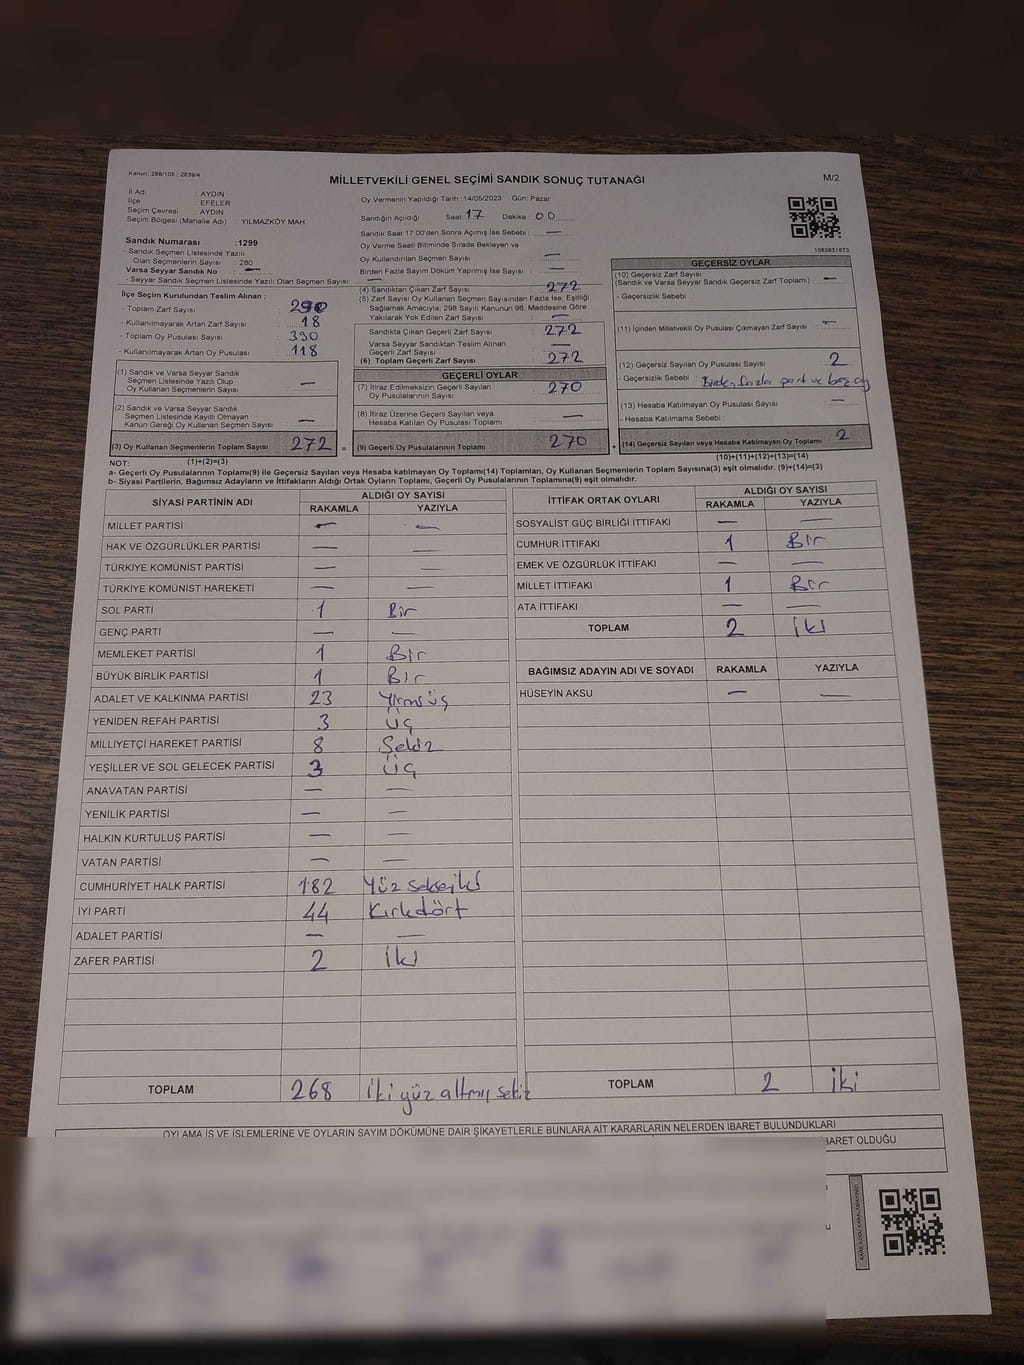 Kanun: 298/105 , 2839/4
MİLLETVEKİLİ GENEL SEÇİMİ SANDIK SONUÇ TUTANAĞI
M/2
İl Adı : AYDIN
İlçe : EFELER
Seçim Çevresi : AYDIN
Seçim Bölgesi (Mahalle Adı) : YILMAZKÖY MAH
Sandık Numarası :1299
- Sandık Seçmen Listesinde Yazılı
Olan Seçmenlerin Sayısı : 280
Varsa Seyyar Sandık No : —
- Seyyar Sandık Seçmen Listesinde Yazılı Olan Seçmen Sayısı: —
İlçe Seçim Kurulundan Teslim Alınan ;
- Toplam Zarf Sayısı : 290
- Kullanılmayarak Artan Zarf Sayısı : 18
- Toplam Oy Pusulası Sayısı : 390
- Kullanılmayarak Artan Oy Pusulası : 118
(1) Sandık ve Varsa Seyyar Sandık
Seçmen Listesinde Yazılı Olup
Oy Kullanan Seçmenlerin Sayısı : —
(2) Sandık ve Varsa Seyyar Sandık
Seçmen Listesinde Kayıtlı Olmayan
Kanun Gereği Oy Kullanan Seçmen Sayısı : —
(3) Oy Kullanan Seçmenlerin Toplam Sayısı : 272 =
Oy Vermenin Yapıldığı Tarih :14/05/2023 Gün: Pazar
Sandığın Açıldığı Saat 17 Dakika : 00
Sandık Saat 17.00'den Sonra Açılmış İse Sebebi : —
Oy Verme Saati Bitiminde Sırada Bekleyen ve
Oy Kullandırılan Seçmen Sayısı : —
Birden Fazla Sayım Döküm Yapılmış İse Sayısı : —
(4) Sandıktan Çıkan Zarf Sayısı : 272
(5) Zarf Sayısı Oy Kullanan Seçmen Sayısından Fazla İse, Eşitliği
Sağlamak Amacıyla; 298 Sayılı Kanunun 98. Maddesine Göre
Yakılarak Yok Edilen Zarf Sayısı : —
Sandıkta Çıkan Geçerli Zarf Sayısı : 272
Varsa Seyyar Sandıktan Teslim Alınan
Geçerli Zarf Sayısı : —
(6) Toplam Geçerli Zarf Sayısı : 272
GEÇERLİ OYLAR
(7) İtiraz Edilmeksizin Geçerli Sayılan
Oy Pusulalarının Sayısı : 270
(8) İtiraz Üzerine Geçerli Sayılan veya
Hesaba Katılan Oy Pusulası Toplamı : —
(9) Geçerli Oy Pusulalarının Toplamı : 270 +
1083831873
GEÇERSİZ OYLAR
(10) Geçersiz Zarf Sayısı
(Sandık ve Varsa Seyyar Sandık Geçersiz Zarf Toplamı) : —
- Geçersizlik Sebebi :
(11) İçinden Milletvekili Oy Pusulası Çıkmayan Zarf Sayısı : —
(12) Geçersiz Sayılan Oy Pusulası Sayısı : 2
- Geçersizlik Sebebi : Birden fazla
(13) Hesaba Katılmayan Oy Pusulası Sayısı : —
- Hesaba Katılmama Sebebi :
(14) Geçersiz Sayılan veya Hesaba Katılmayan Oy Toplamı : 2
NOT: (1)+(2)=(3) (10)+(11)+(12)+(13)=(14)
a- Geçerli Oy Pusulalarının Toplamı(9) ile Geçersiz Sayılan veya Hesaba katılmayan Oy Toplamı(14) Toplamları, Oy Kullanan Seçmenlerin Toplam Sayısına(3) eşit olmalıdır. (9)+(14)=(3)
b- Siyasi Partilerin, Bağımsız Adayların ve İttifakların Aldığı Ortak Oyların Toplamı, Geçerli Oy Pusulalarının Toplamına(9) eşit olmalıdır.
SİYASİ PARTİNİN ADI ALDIĞI OY SAYISI
RAKAMLA YAZIYLA
MİLLET PARTİSİ — —
HAK VE ÖZGÜRLÜKLER PARTİSİ — —
TÜRKİYE KOMÜNİST PARTİSİ — —
TÜRKİYE KOMÜNİST HAREKETİ — —
SOL PARTİ 1 Bir
GENÇ PARTİ — —
MEMLEKET PARTİSİ 1 Bir
BÜYÜK BİRLİK PARTİSİ 1 Bir
ADALET VE KALKINMA PARTİSİ 23 Yirmiüç
YENİDEN REFAH PARTİSİ 3 Üç
MİLLİYETÇİ HAREKET PARTİSİ 8 Sekiz
YEŞİLLER VE SOL GELECEK PARTİSİ 3 Üç
ANAVATAN PARTİSİ — —
YENİLİK PARTİSİ — —
HALKIN KURTULUŞ PARTİSİ — —
VATAN PARTİSİ — —
CUMHURİYET HALK PARTİSİ 182 Yüz seksoniki
İYİ PARTİ 44 Kırkdört
ADALET PARTİSİ — —
ZAFER PARTİSİ 2 İki
TOPLAM 268 İki yüz altmış sekiz
İTTİFAK ORTAK OYLARI ALDIĞI OY SAYISI
RAKAMLA YAZIYLA
SOSYALİST GÜÇ BİRLİĞİ İTTİFAKI — —
CUMHUR İTTİFAKI 1 Bir
EMEK VE ÖZGÜRLÜK İTTİFAKI — —
MİLLET İTTİFAKI 1 Bir
ATA İTTİFAKI — —
TOPLAM 2 İki
BAĞIMSIZ ADAYIN ADI VE SOYADI RAKAMLA YAZIYLA
HÜSEYİN AKSU — —
TOPLAM 2 İki
OYLAMA İŞ VE İŞLEMLERİNE VE OYLARIN SAYIM DÖKÜMÜNE DAİR ŞİKAYETLERLE BUNLARA AİT KARARLARIN NELERDEN İBARET BULUNDUKLARI
İBARET OLDUĞU